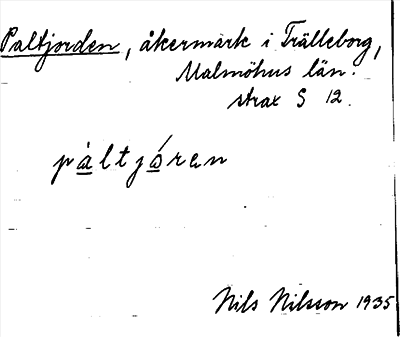 Paltjorden, åkermark i Trälleborg,
Malmöhus län.
strax S 12.
pàltjóren
Nils Nilsson 1935